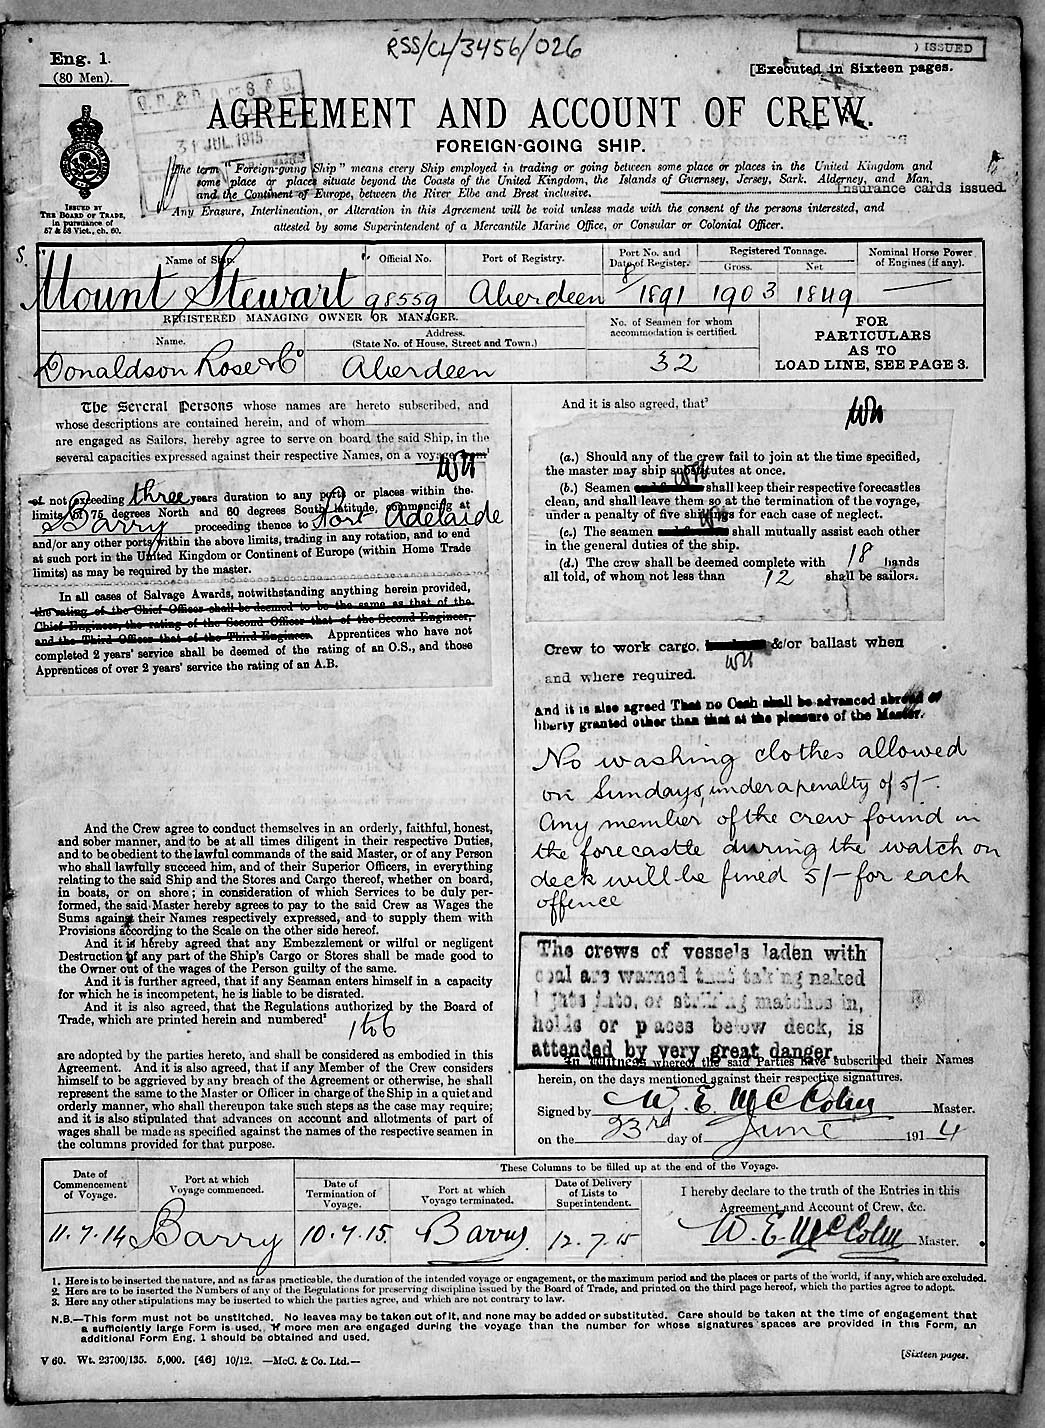 RSS/CL/3456/026
Eng. 1.
(80 Men).
ISSUED
[Executed in Sixteen pages.
31 JUL. 1915
AGREEMENT AND ACCOUNT OF CREW.
FOREIGN-GOING SHIP.
The term "Foreign-going Ship" means every Ship employed in trading or going between some place or places in the United Kingdom and
some place or places situate beyond the Coasts of the United Kingdom, the Islands of Guernsey, Jersey, Sark, Alderney, and Man,
and the Continent of Europe, between the River Elbe and Brest inclusive.
Insurance cards issued.
Any Erasure, Interlineation, or Alteration in this Agreement will be void unless made with the consent of the persons interested, and
attested by some Superintendent of a Mercantile Marine Office, or Consular or Colonial Officer.
ISSUED BY
THE BOARD OF TRADE,
in pursuance of
57 & 58 Vict., ch. 60.
Name of Ship.
Official No.
Port of Registry.
Port No. and
Date of Register.
Registered Tonnage.
Gross.
Net
Nominal Horse Power
of Engines (if any).
S.
"Mount Stewart"
98559
Aberdeen
8/1891
1903
1849
REGISTERED MANAGING OWNER OR MANAGER.
Name.
Address.
(State No. of House, Street and Town.)
No. of Seamen for whom
accommodation is certified.
FOR
PARTICULARS
AS TO
LOAD LINE, SEE PAGE 3.
Donaldson Rose & Co
Aberdeen
32
The Several Persons whose names are hereto subscribed, and
whose descriptions are contained herein, and of whom
are engaged as Sailors, hereby agree to serve on board the said Ship, in the
several capacities expressed against their respective Names, on a voyage from
of not exceeding three years duration to any ports or places within the
limits of 75 degrees North and 60 degrees South latitude, commencing at
Barry proceeding thence to Port Adelaide
and/or any other ports within the above limits, trading in any rotation, and to end
at such port in the United Kingdom or Continent of Europe (within Home Trade
limits) as may be required by the master.
In all cases of Salvage Awards, notwithstanding anything herein provided,
the rating of the Chief Officer shall be deemed to be the same as that of the
Chief Engineer, the rating of the Second Officer that of the Second Engineer,
and the Third Officer that of the Third Engineer. Apprentices who have not
completed 2 years' service shall be deemed of the rating of an O.S., and those
Apprentices of over 2 years' service the rating of an A.B.
And the Crew agree to conduct themselves in an orderly, faithful, honest,
and sober manner, and to be at all times diligent in their respective Duties,
and to be obedient to the lawful commands of the said Master, or of any Person
who shall lawfully succeed him, and of their Superior Officers, in everything
relating to the said Ship and the Stores and Cargo thereof, whether on board,
in boats, or on shore; in consideration of which Services to be duly per-
formed, the said Master hereby agrees to pay to the said Crew as Wages the
Sums against their Names respectively expressed, and to supply them with
Provisions according to the Scale on the other side hereof.
And it is hereby agreed that any Embezzlement or wilful or negligent
Destruction of any part of the Ship's Cargo or Stores shall be made good to
the Owner out of the wages of the Person guilty of the same.
And it is further agreed, that if any Seaman enters himself in a capacity
for which he is incompetent, he is liable to be disrated.
And it is also agreed, that the Regulations authorized by the Board of
Trade, which are printed herein and numbered²
1 to 6
are adopted by the parties hereto, and shall be considered as embodied in this
Agreement. And it is also agreed, that if any Member of the Crew considers
himself to be aggrieved by any breach of the Agreement or otherwise, he shall
represent the same to the Master or Officer in charge of the Ship in a quiet and
orderly manner, who shall thereupon take such steps as the case may require;
and it is also stipulated that advances on account and allotments of part of
wages shall be made as specified against the names of the respective seamen in
the columns provided for that purpose.
And it is also agreed, that³
(a.) Should any of the crew fail to join at the time specified,
the master may ship substitutes at once.
(b.) Seamen shall keep their respective forecastles
clean, and shall leave them so at the termination of the voyage,
under a penalty of five shillings for each case of neglect.
(c.) The seamen shall mutually assist each other
in the general duties of the ship.
(d.) The crew shall be deemed complete with 18 hands
all told, of whom not less than 12 shall be sailors.
Crew to work cargo, &/or ballast when
and where required.
And it is also agreed That no Cash shall be advanced abroad or
liberty granted other than that at the pleasure of the Master.
No washing clothes allowed
on Sundays, under a penalty of 5/-
Any member of the crew found in
the forecastle during the watch on
deck will be fined 5/- for each
offence
The crews of vessels laden with
coal are warned that taking naked
lights into, or striking matches in,
holds or places below deck, is
attended by very great danger.
In Witness whereof the said Parties have subscribed their Names
herein, on the days mentioned against their respective signatures.
Signed by W. E. McColm Master.
on the 23rd day of June 1914
Date of
Commencement
of Voyage.
Port at which
Voyage commenced.
These Columns to be filled up at the end of the Voyage.
Date of
Termination of
Voyage.
Port at which
Voyage terminated.
Date of Delivery
of Lists to
Superintendent.
I hereby declare to the truth of the Entries in this
Agreement and Account of Crew, &c.
11.7.14
Barry
10.7.15.
Barry
12.7.15
W. E. McColm Master.
1. Here is to be inserted the nature, and as far as practicable, the duration of the intended voyage or engagement, or the maximum period and the places or parts of the world, if any, which are excluded.
2. Here are to be inserted the Numbers of any of the Regulations for preserving discipline issued by the Board of Trade, and printed on the third page hereof, which the parties agree to adopt.
3. Here any other stipulations may be inserted to which the parties agree, and which are not contrary to law.
N.B.—This form must not be unstitched. No leaves may be taken out of it, and none may be added or substituted. Care should be taken at the time of engagement that
a sufficiently large Form is used. If more men are engaged during the voyage than the number for whose signatures spaces are provided in this Form, an
additional Form Eng. 1 should be obtained and used.
V 60. Wt. 23700/135. 5,000. [46] 10/12. —McC. & Co. Ltd.—
[Sixteen pages.